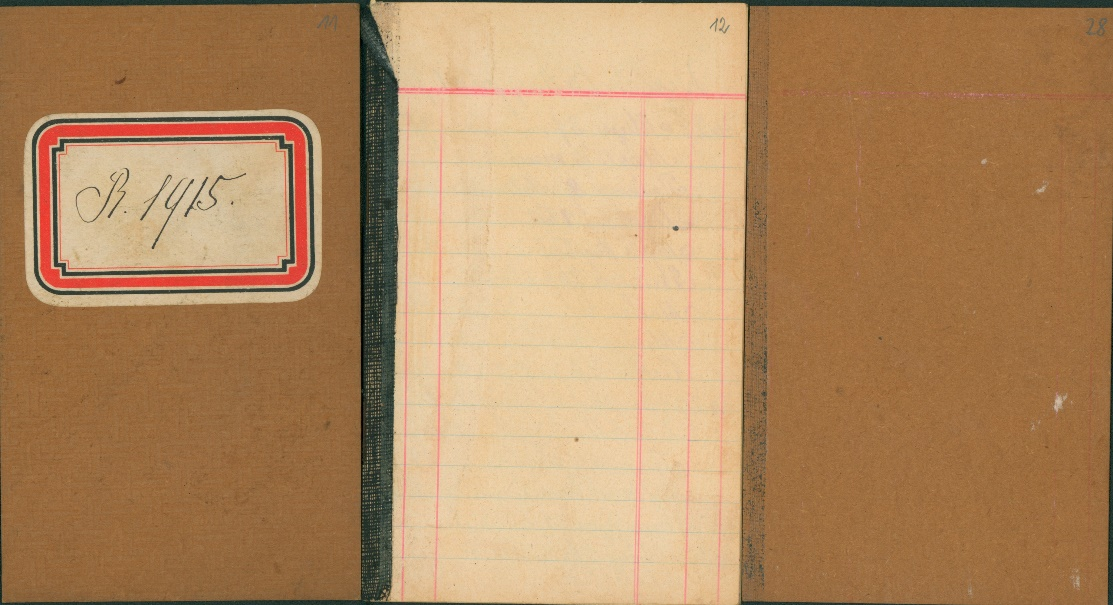 11
R. 1915.
12
28